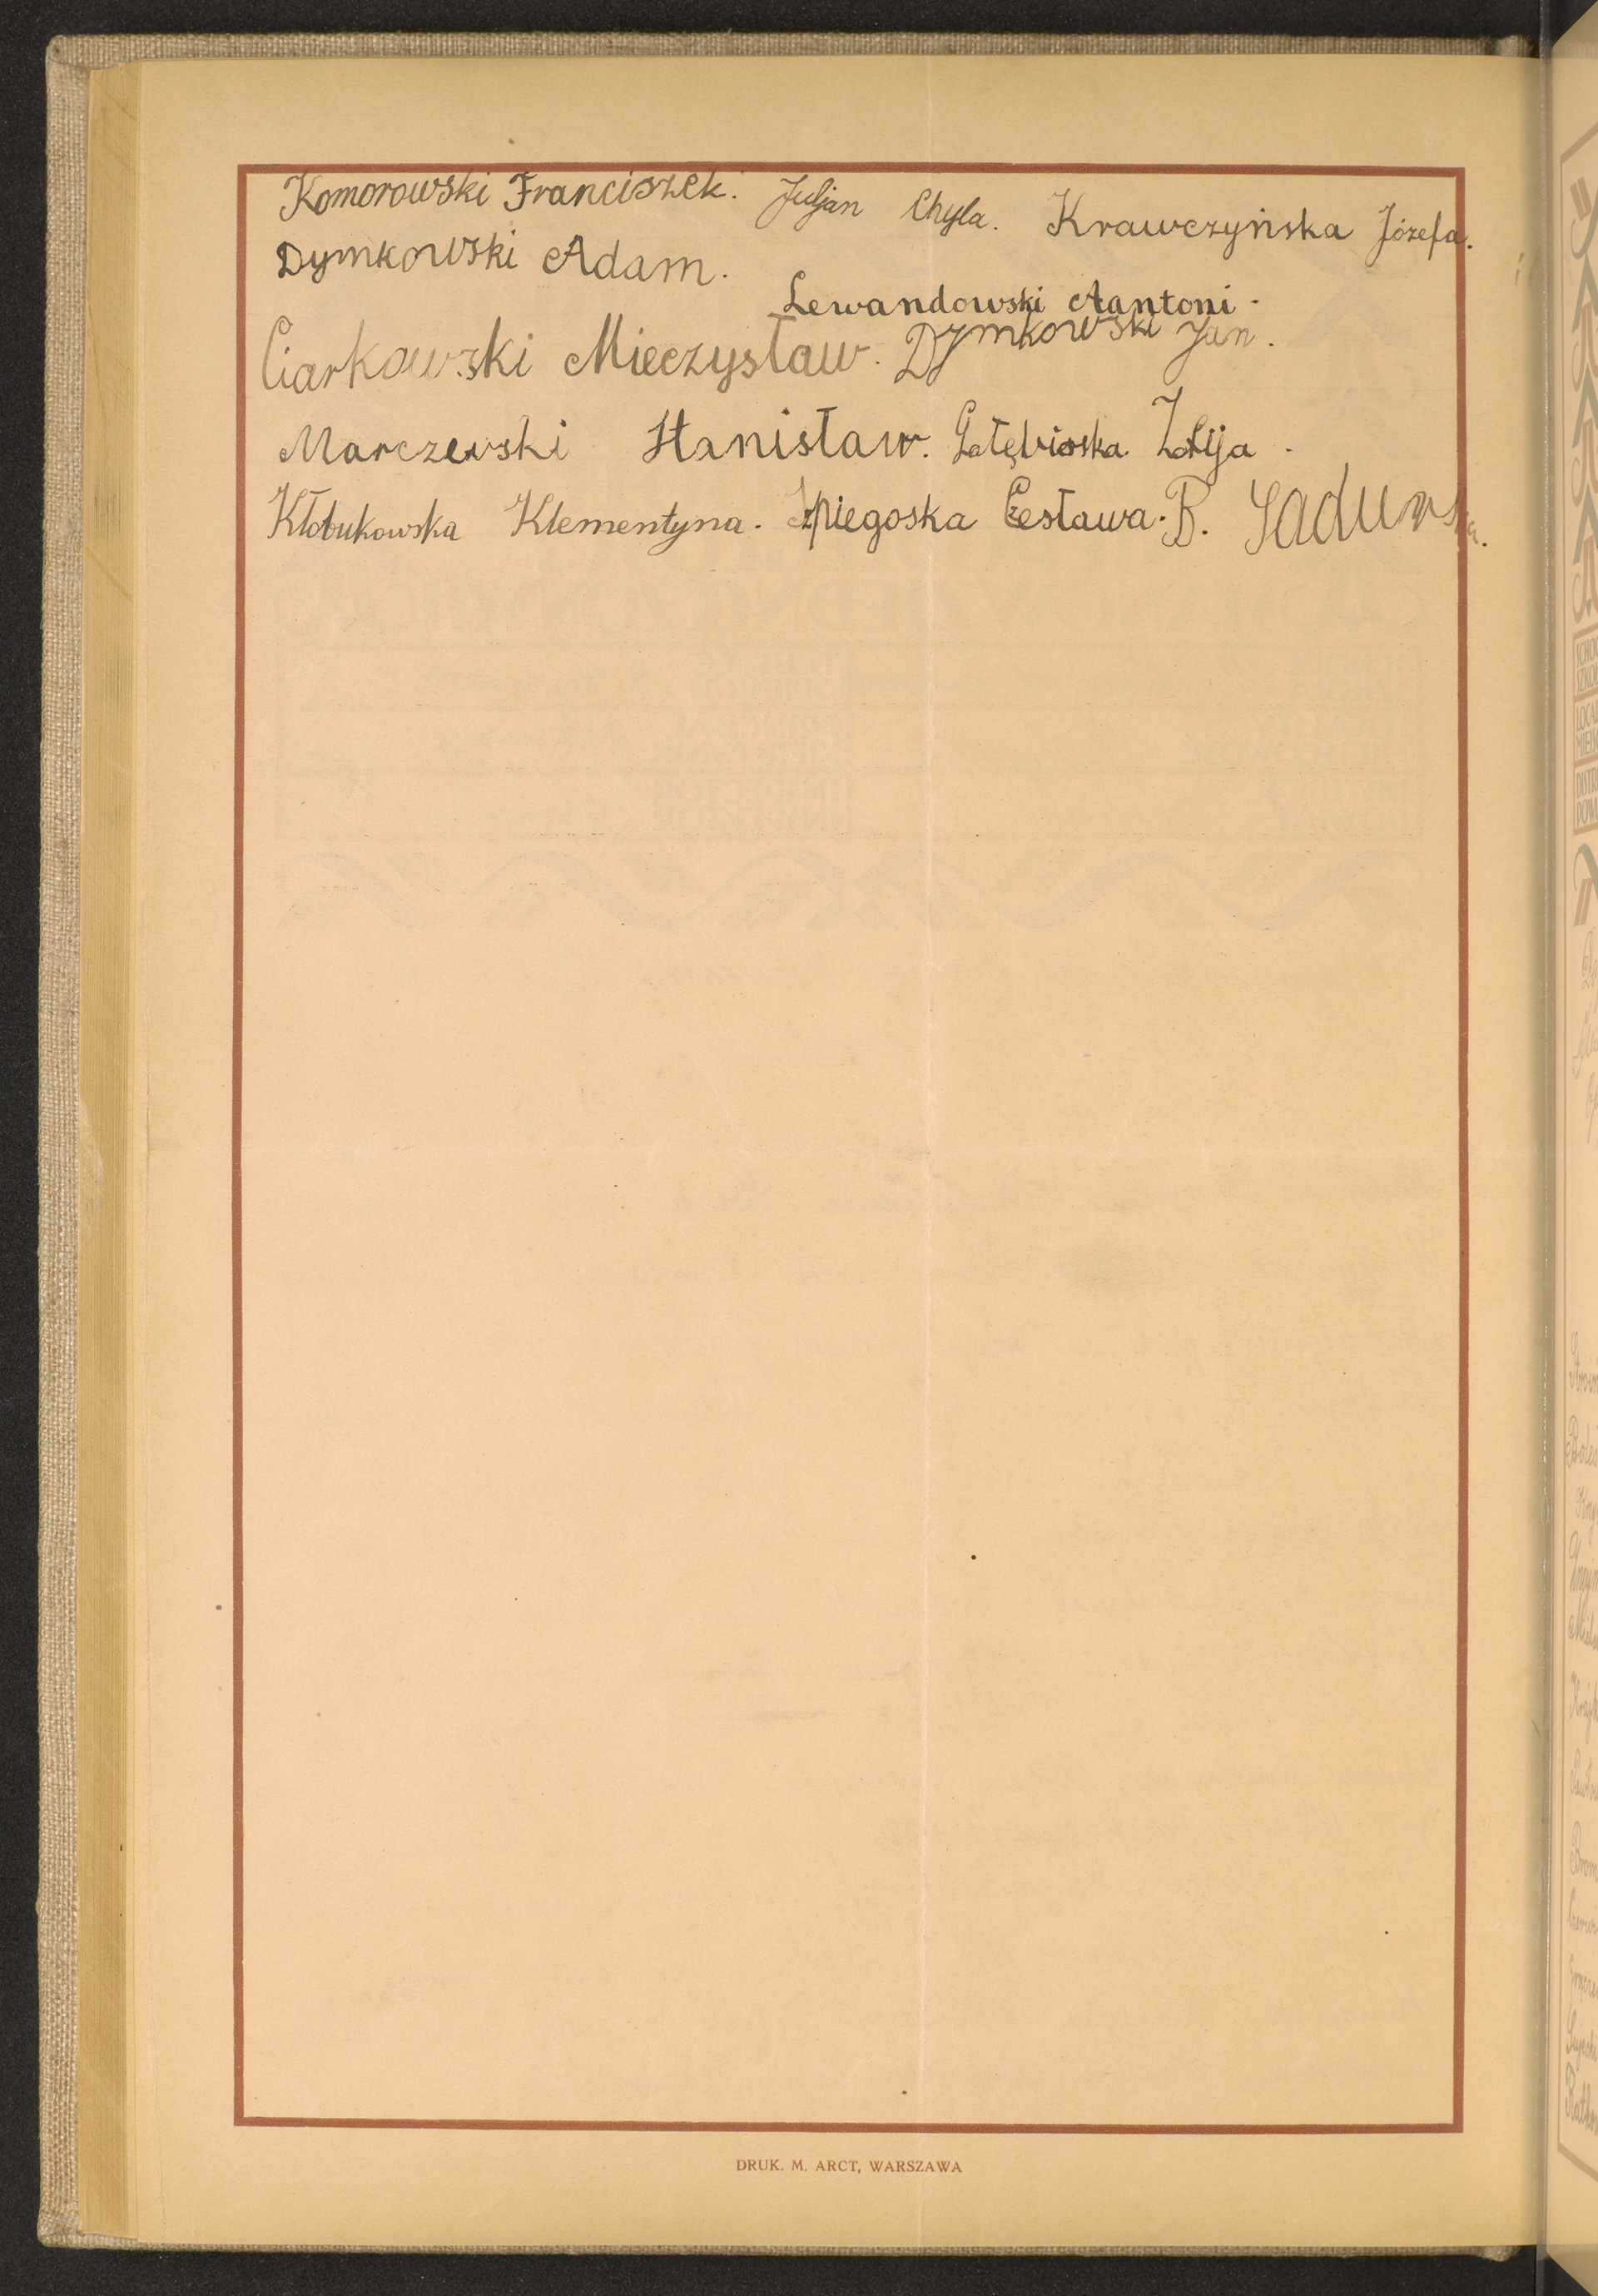 Komorowski Franciszek. Juljan Chyla. Krawczyńska Józefa.
Dymkowski Adam.
Lewandowski Aantoni -
Ciarkowski Mieczysław. Dymkowski Jan.
Marczewski Stanisław. Gołębioska Zofija -
Kłobukowska Klementyna. Szpiegoska Czesława. B. Sadurska.
DRUK. M. ARCT, WARSZAWA